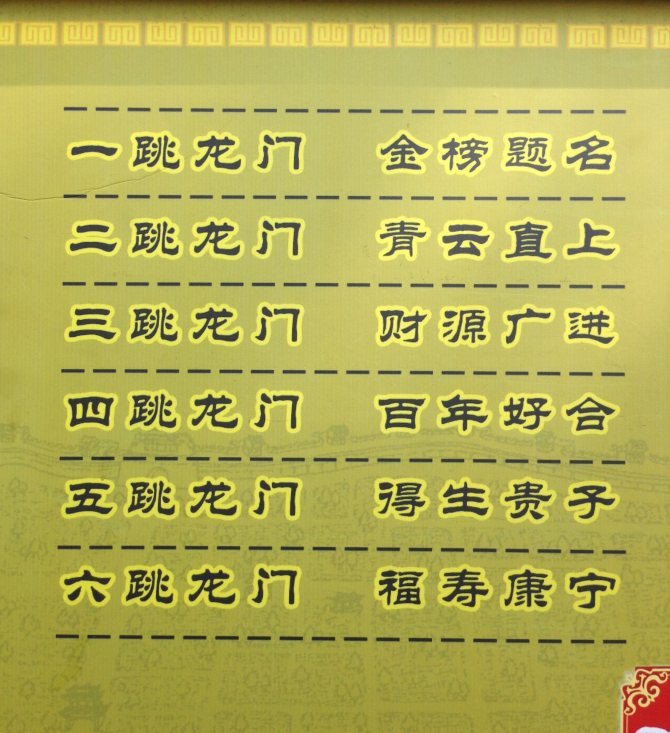 一跳龙门 金榜题名
二跳龙门 青云直上
三跳龙门 财源广进
四跳龙门 百年好合
五跳龙门 得生贵子
六跳龙门 福寿康宁